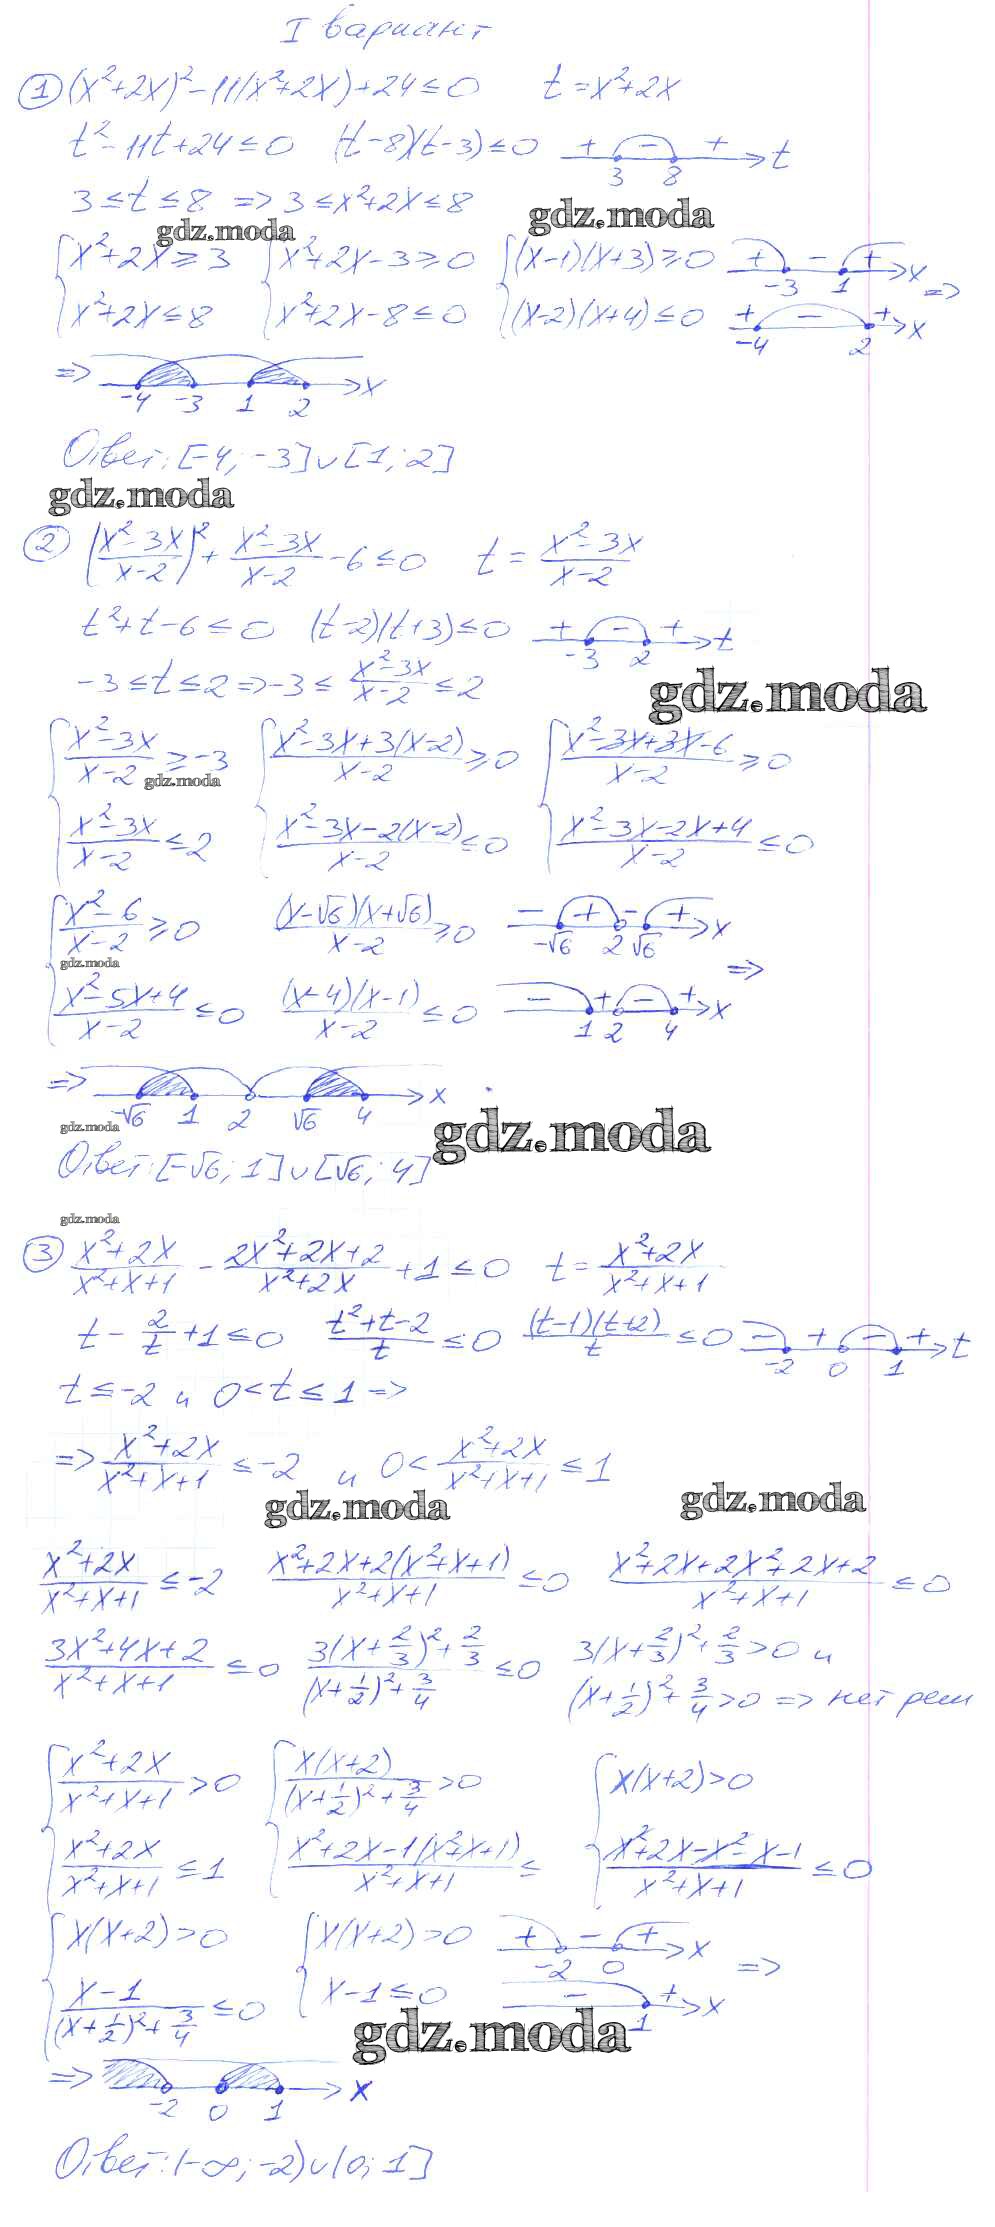 I вариант
① (x²+2x)²-11(x²+2x)+24≤0 t=x²+2x
t²-11t+24≤0 (t-8)(t-3)≤0 + - + 3 8 t
3≤t≤8 => 3≤x²+2x≤8
gdz.moda
gdz.moda
{x²+2x≥3 {x²+2x-3≥0 {(x-1)(x+3)≥0 + - + -3 1 x
x²+2x≤8 x²+2x-8≤0 (x-2)(x+4)≤0 + - + -4 2 x =>
=> -4 -3 1 2 x
Ответ: [-4; -3]∪[1; 2]
gdz.moda
② ((x²-3x)/(x-2))² + (x²-3x)/(x-2) - 6≤0 t = (x²-3x)/(x-2)
t²+t-6≤0 (t-2)(t+3)≤0 + - + -3 2 t
-3≤t≤2 => -3≤ (x²-3x)/(x-2) ≤2
gdz.moda
{(x²-3x)/(x-2) ≥-3 {(x²-3x+3(x-2))/(x-2) ≥0 {(x²-3x+3x-6)/(x-2) ≥0
gdz.moda
(x²-3x)/(x-2) ≤2 (x²-3x-2(x-2))/(x-2) ≤0 (x²-3x-2x+4)/(x-2) ≤0
{(x²-6)/(x-2) ≥0 ((x-√6)(x+√6))/(x-2) ≥0 - + - + -√6 2 √6 x
gdz.moda
=>
(x²-5x+4)/(x-2) ≤0 ((x-4)(x-1))/(x-2) ≤0 - + - + 1 2 4 x
=> -√6 1 2 √6 4 x
gdz.moda
gdz.moda
Ответ: [-√6; 1]∪[√6; 4]
gdz.moda
③ (x²+2x)/(x²+x+1) - (2x²+2x+2)/(x²+2x) +1≤0 t= (x²+2x)/(x²+x+1)
t - 2/t +1≤0 (t²+t-2)/t ≤0 ((t-1)(t+2))/t ≤0 - + - + -2 0 1 t
t≤-2 и 0<t≤1 =>
=> (x²+2x)/(x²+x+1) ≤-2 и 0< (x²+2x)/(x²+x+1) ≤1
gdz.moda
gdz.moda
(x²+2x)/(x²+x+1) ≤-2 (x²+2x+2(x²+x+1))/(x²+x+1) ≤0 (x²+2x+2x²+2x+2)/(x²+x+1) ≤0
(3x²+4x+2)/(x²+x+1) ≤0 (3(x+2/3)²+2/3)/((x+1/2)²+3/4) ≤0 3(x+2/3)²+2/3>0 и
(x+1/2)²+3/4>0 => нет реш
{(x²+2x)/(x²+x+1) >0 {(x(x+2))/((x+1/2)²+3/4) >0 {x(x+2)>0
(x²+2x)/(x²+x+1) ≤1 (x²+2x-1(x²+x+1))/(x²+x+1) ≤ (x²+2x-x²-x-1)/(x²+x+1) ≤0
{x(x+2)>0 {x(x+2)>0 + - + -2 0 x =>
(x-1)/((x+1/2)²+3/4) ≤0 x-1≤0 - + 1 x
gdz.moda
=> -2 0 1 x
Ответ: (-∞; -2)∪(0; 1]